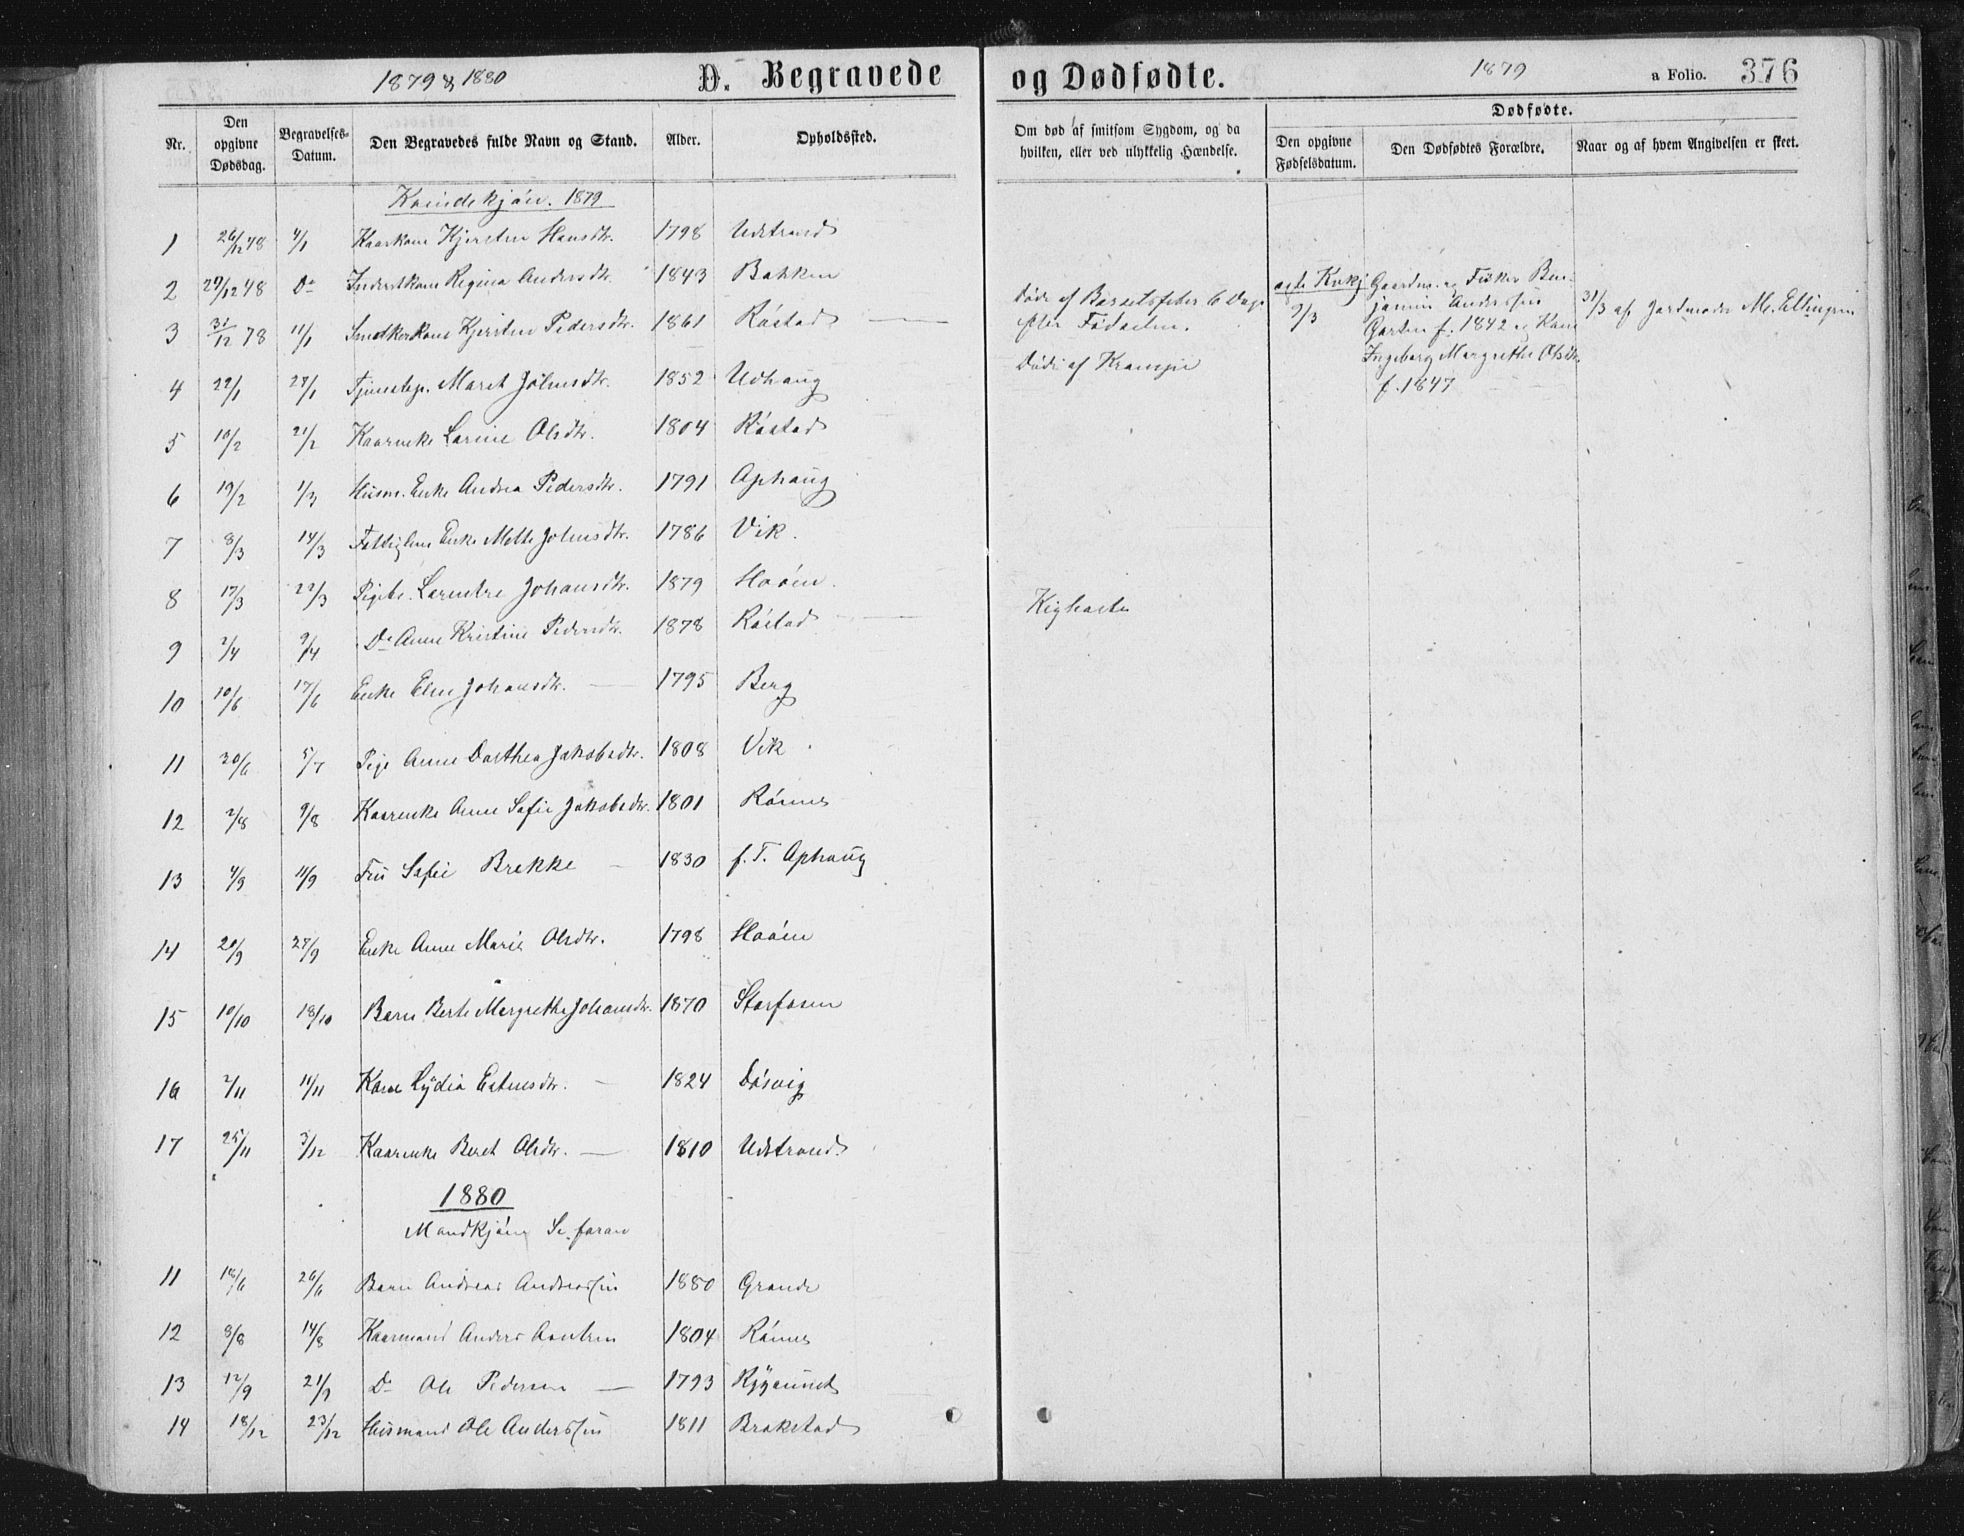 1879 & 1880 D. Begravede og Dødfødte. 1879 a Folio. 376
Nr. Den opgivne Dødsdag. Begravelses-Datum. Den Begravedes fulde Navn og Stand. Alder. Opholdssted. Om død af smitsom Sygdom, og da hvilken, eller ved ulykkelig Hændelse. Dødfødte. Den opgivne Fødselsdatum. Den Dødfødtes Forældre. Naar og af hvem Angivelsen er skeet.
Kvindekjön. 1879
1 26/12 78 4/1 Kaarkone Kjersten Hansdtr. 1798 Udstrand
2 27/12 78 Do Inderstkone Regina Andersdtr. 1843 Bakken
3 31/12 78 11/1 Snedkerkone Kjersten Pedersdtr. 1861 Röstad — Döde af Barselsfeber 6 Dage
efter Födselen.
4 22/1 28/1 Tjenestep. Maret Johnsdtr. 1852 Udhaug Döde af Krampe
5 10/2 21/2 Kaarenke Larine Olsdtr. 1804 Röstad
6 19/2 1/3 Husm. Enke Andrea Pedersdtr. 1791 Ophaug
7 8/3 14/3 Fattiglem Enke Mette Johnsdtr. 1786 Vik.
8 17/3 22/3 Pigeb. Larentze Johansdtr. 1879 Hoöen.
9 2/4 9/4 Do Anne Kristine Pedersdtr. 1878 Röstad — Kighoste
10 10/6 17/6 Enke Elen Johansdtr. — 1795 Berg
11 30/6 5/7 Pige Anne Dorthea Jakobsdtr. 1808 Vik
12 2/8 9/8 Kaarenke Anne Sofie Jakobsdtr. 1801 Rönnes
13 4/9 11/9 Fru Sofie Brekke — 1830 f. T. Ophaug
14 20/9 27/9 Enke Anne Marie Olsdtr. 1798 Hoöen
15 10/10 18/10 Barn Berte Margrethe Johansdtr. 1870 Storfosen
16 2/11 11/11 Kone Lydia Estensdtr. — 1824 Dösvig
17 25/11 3/12 Kaarenke Beret Olsdtr. — 1810 Udstrand
1880
Mandkjön Se foran
11 18/6 26/6 Barn Andreas Andreassen 1880 Grande
12 8/8 14/8 Kaarmand Anders 1804 Rönnes
13 12/9 21/9 Do Ole Pedersen — 1793
14 18/12 23/12 Husmand Ole Anderssen 1811 Brekstad
ægte Kvkj
9/3
Gaardm. og Fisker Ben-
jamin Anderssen
Garten f. 1842 og Kone
Ingeborg Margrethe Olsdtr.
f. 1847
31/3 af Jordmoder M. Ellingsen